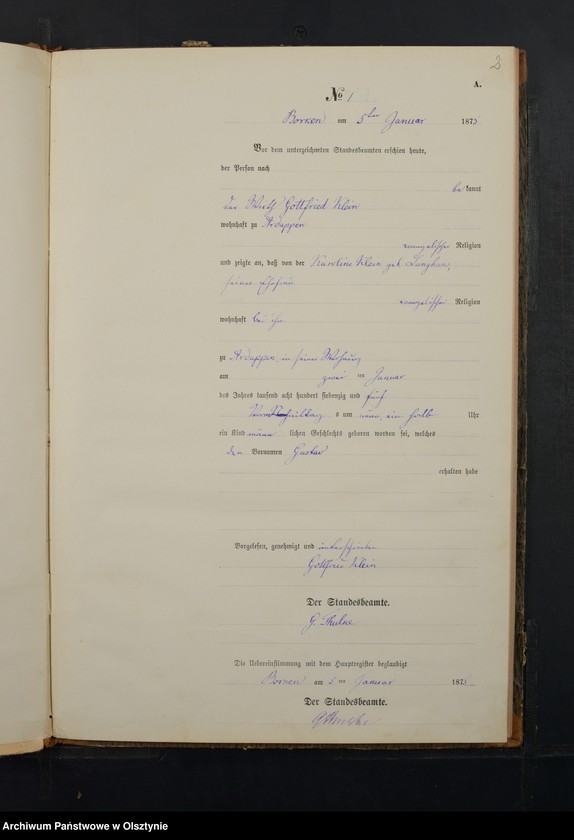 2
A.
No 1
Borken am 5ten Januar 1875
Vor dem unterzeichneten Standesbeamten erschien heute,
der Person nach
bekannt
der Wirth Gottfried Klein
wohnhaft zu Ardappen
evangelischer Religion
und zeigte an, daß von der Karoline Klein geb. Langhans,
seiner Ehefrau
evangelischer Religion
wohnhaft bei ihm
zu Ardappen in seiner Wohnung
am zwei ten Januar
des Jahres tausend acht hundert siebenzig und fünf
Vormittag s um neun ein halb Uhr
ein Kind männlichen Geschlechts geboren worden sei, welches
den Vornamen Gustav
erhalten habe
Vorgelesen, genehmigt und unterschrieben
Gottfried Klein
Der Standesbeamte.
G.
Die Uebereinstimmung mit dem Hauptregister beglaubigt
Borken am 5ten Januar 1875
Der Standesbeamte.
Archiwum Państwowe w Olsztynie